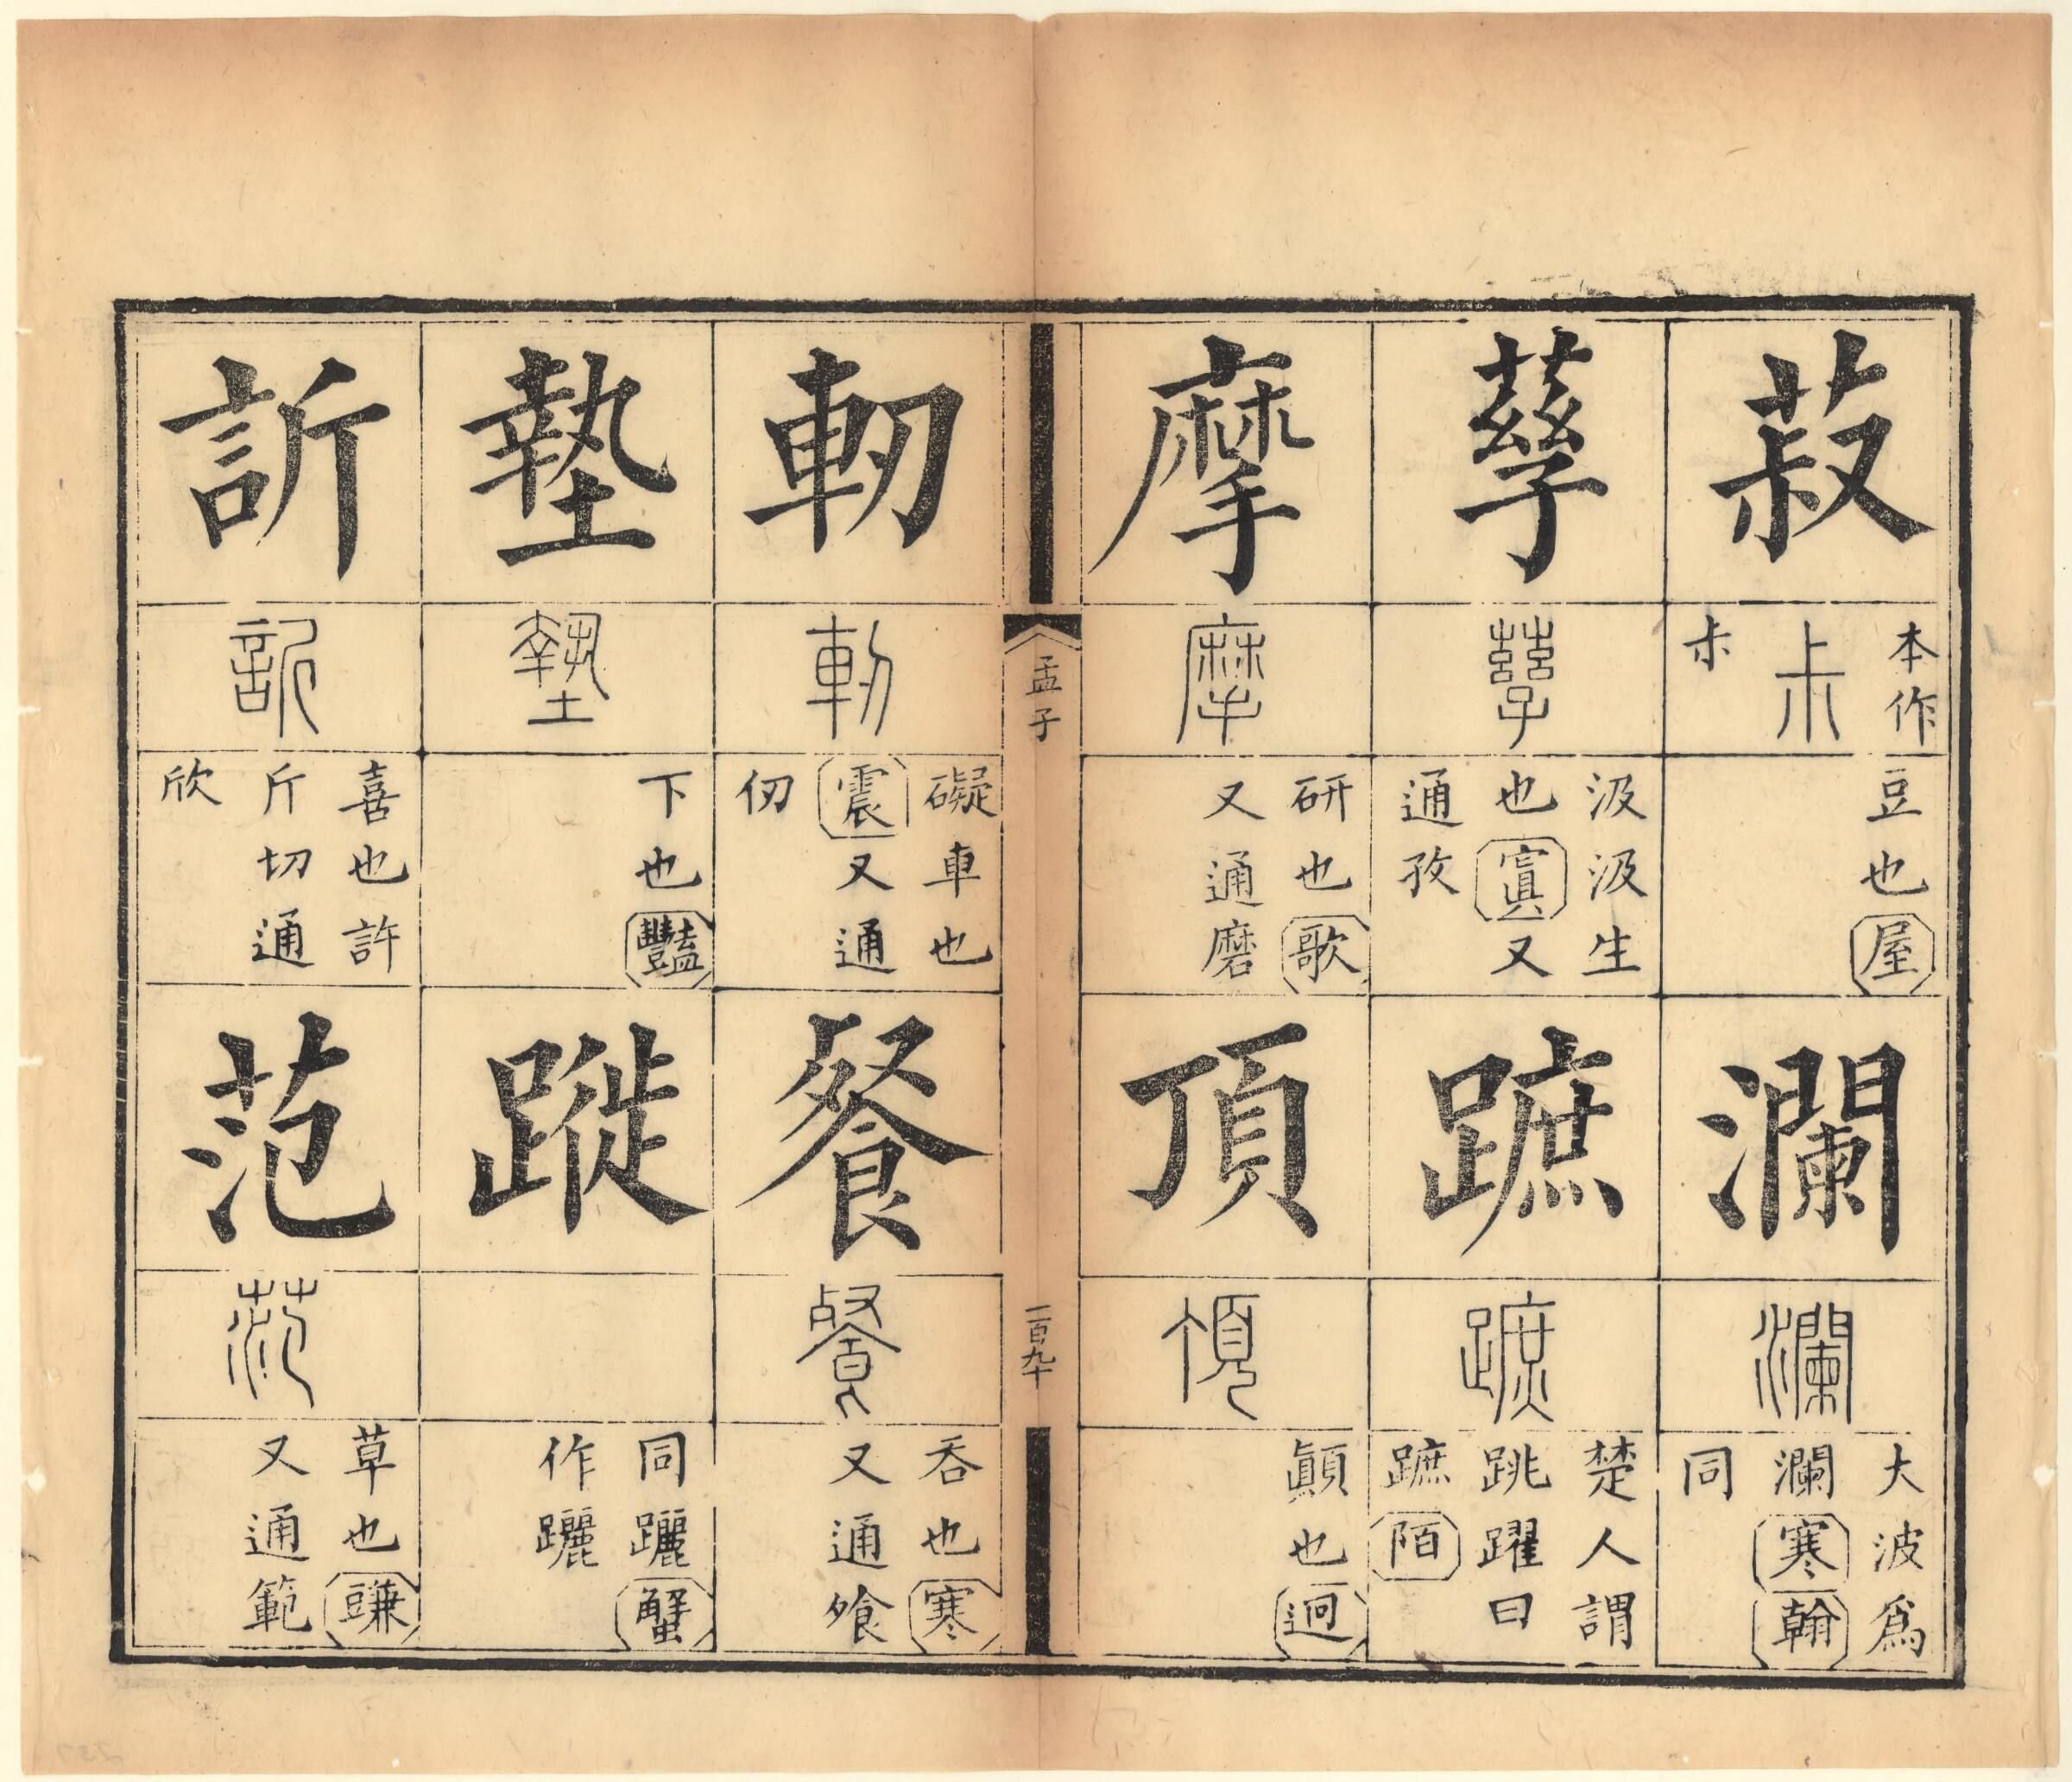 菽
本作
尗
尗
豆也屋
瀾
瀾
大波爲
瀾寒翰
同
孳
孳
汲汲生
也寘又
通孜
蹠
蹠
楚人謂
跳躍曰
蹠陌
摩
摩
研也歌
又通磨
頂
頂
顚也迥
孟子
一百九十
軔
軔
礙車也
震又通
仞
餐
餐
吞也寒
又通飧
墊
墊
下也豔
蹝
同躧蟹
作躧
訢
訢
喜也許
斤切通
欣
范
范
草也豏
又通範